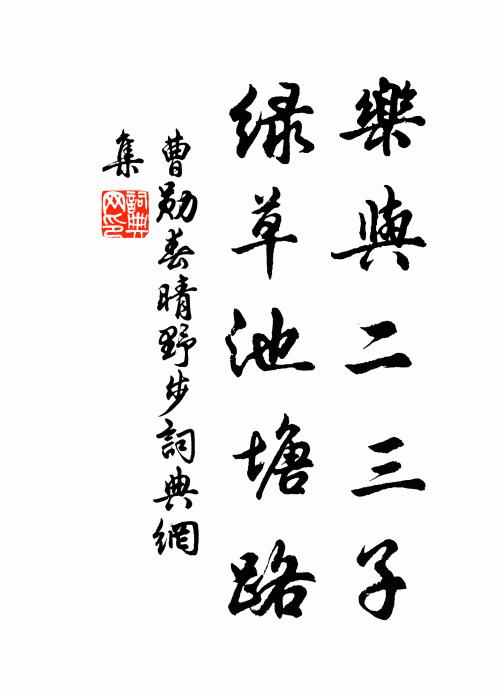 樂與二三子
緑草池塘路
曹勛春晴野步詞典網
集
詞典
网印